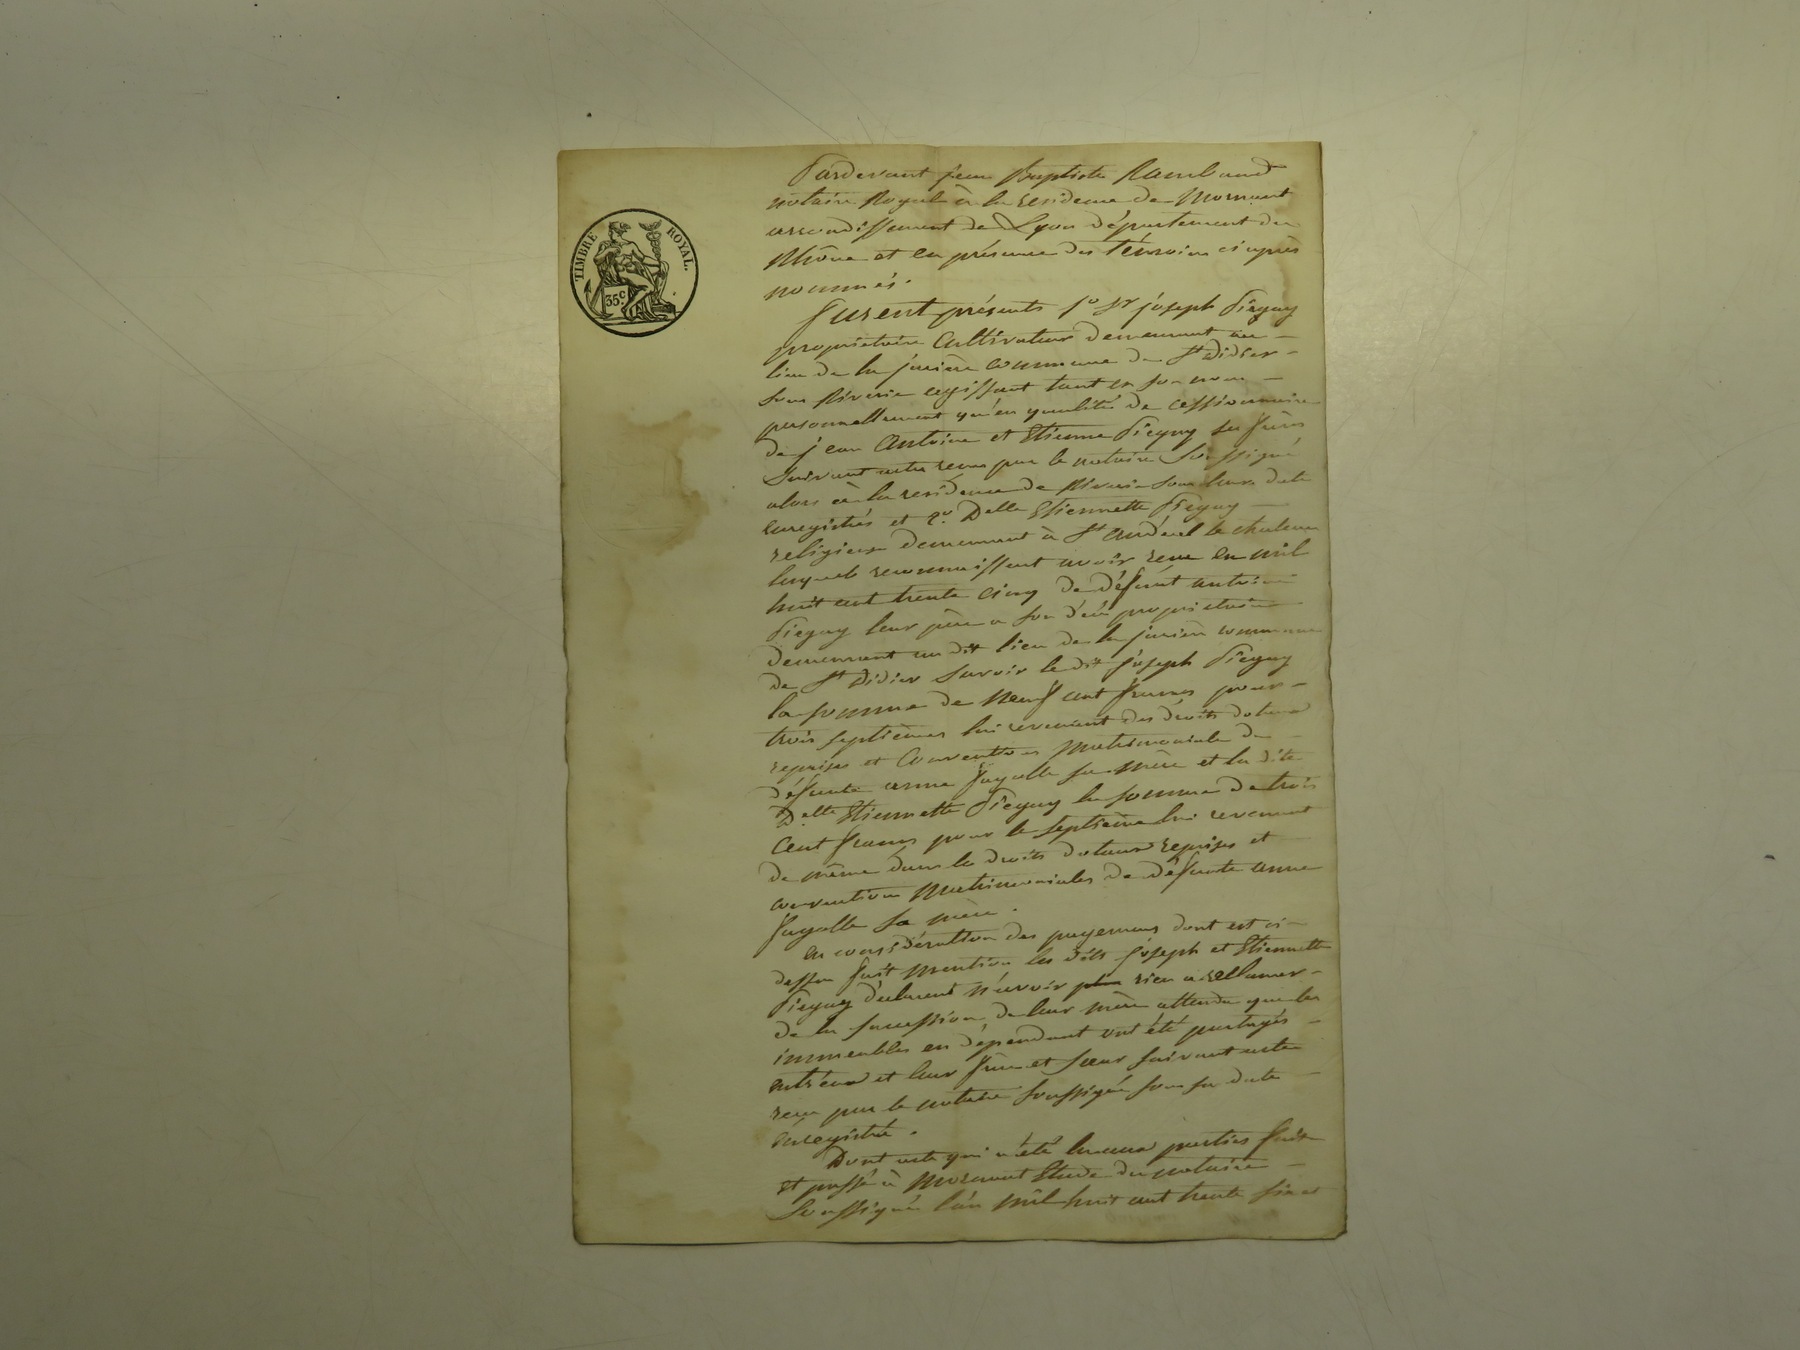 TIMBRE ROYAL.
35 c.
Pardevant jean Baptiste Rambaud
notaire Royal à la residence de Mornant
arrondissement de Lyon département du
Rhône et en présence des témoins ci après
nommés.
furent présents 1º Sr joseph Piegay
proprietaire Cultivateur demeurant au
lieu de la jurière commune de St Didier
Sous Riverie agissant tant en son nom
personnellement qu'en qualité de cessionnaire
de jean Antoine et Etienne Piegay ses frères
Suivant actes recus par le notaire Soussigné
alors à la residence de Riverie sous leurs date
enregistrés et 2º Delle Etiennette Piegay
religieuse demeurant à St andéol le chateau
lesquels reconnaissent avoir recu en mil
huit cent trente cinq de défunt antoine
Piegay leur père a son décès proprietaire
demeurant au dit lieu de la jurière commune
de St Didier Savoir le dit joseph Piegay
la somme de neuf cent francs pour
trois septièmes lui revenant des droits dotaux
reprises et Conventions matrimoniales de
défunte anne fayolle sa mère et la dite
Delle Etiennette Piegay la somme de trois
Cent francs pour le septième lui revenant
de même dans les droits dotaux reprises et
convention Matrimoniales de défunte anne
fayolle sa mère.
en considération des payemens dont est ci-
dessus fait mention les dits joseph et Etiennette
Piegay déclarent n'avoir plus rien a reclamer
de la succession de leur mère attendu que les
immeubles en dépendant ont été partagés
entr'eux et leur frère et sœur suivant acte
recu par le notaire Soussigné sous sa date
enregistré.
Dont acte qui a été lu aux parties fait
et passé à Mornant Etude du notaire
Soussigné l'an mil huit cent trente six et